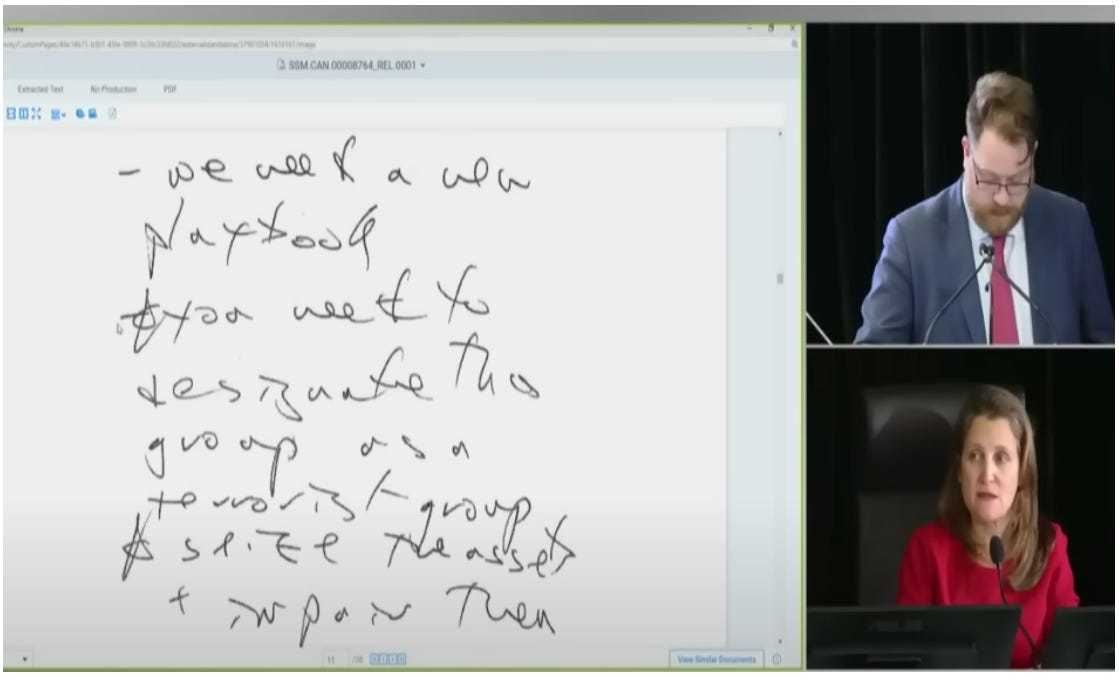 Chrome
SSM.CAN.00008764_REL.0001
Extracted Text No Production PDF
- we need a new
playbook
you need to
designate this
group as a
terrorist group
seize the assets
+ impair them
11 /38
View Similar Documents